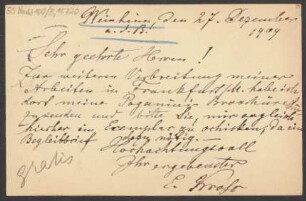 den 27. Dezember
1909
a. d. B.
Sehr geehrte Herren!
Zur weiteren Verbreitung meiner
Arbeiten in Frankfurt /M. habe ich
dort meine Paganini Broschüre
zu senden und bitte Sie, mir
hierher in Exemplar zu schicken, da im
Begleitbrief nötig.
Hochachtungsvoll
Ihr ergebenster
E.
gratis